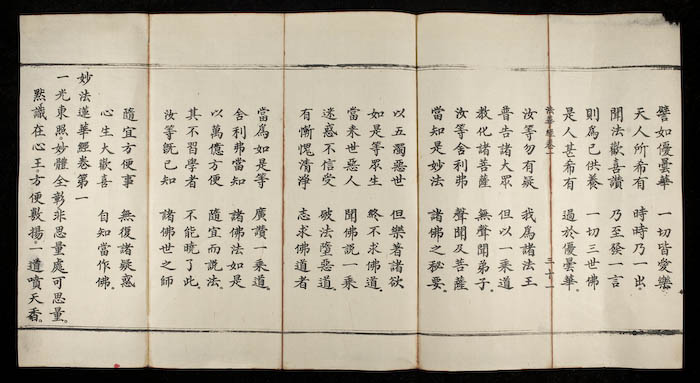 譬如優曇華　一切皆愛樂
天人所希有　時時乃一出。
聞法歡喜讚　乃至發一言
則爲已供養　一切三世佛
是人甚希有　過於優曇華。
法華經卷一　三十一
汝等勿有疑　我爲諸法王
普告諸大眾　但以一乘道
教化諸菩薩　無聲聞弟子
汝等舍利弗　聲聞及菩薩
當知是妙法　諸佛之秘要。
以五濁惡世　但樂著諸欲
如是等眾生　終不求佛道
當來世惡人　聞佛說一乘
迷惑不信受　破法墮惡道
有慚愧清淨　志求佛道者
當爲如是等　廣讚一乘道。
舍利弗當知　諸佛法如是
以萬億方便　隨宜而說法。
其不習學者　不能曉了此。
汝等旣已知　諸佛世之師
隨宜方便事　無復諸疑惑
心生大歡喜　自知當作佛。
妙法蓮華經卷第一
一光東照。妙體全彰非思量處可思量。
默識在心王。方便敷揚。一道噴天香。